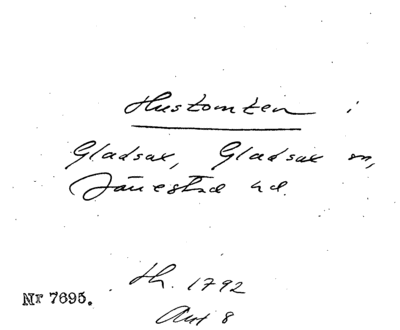 Hustomten i
Gladsax, Gladsax sn,
Järrestad hd.
th. 1792
Nr 7695.
Akt 8